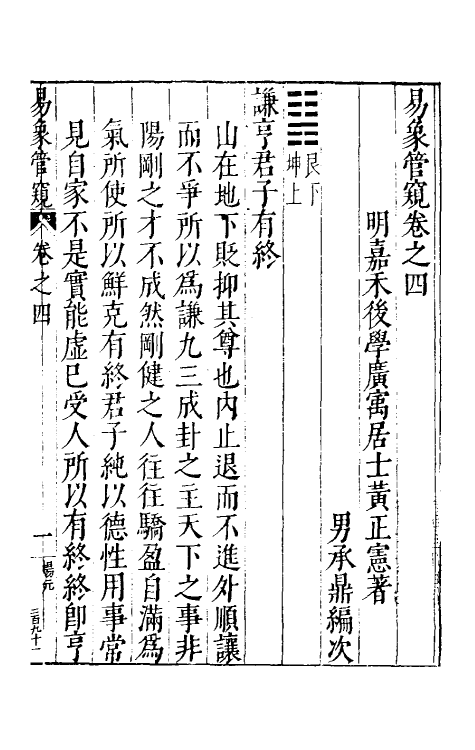 易象管窺卷之四
明嘉禾後學廣寓居士黃正憲著
男承鼎編次
艮下
坤上
謙亨君子有終
山在地下貶抑其尊也內止退而不進外順讓
而不爭所以爲謙九三成卦之主天下之事非
陽剛之才不成然剛健之人往往驕盈自滿爲
氣所使所以鮮克有終君子純以德性用事常
見自家不是實能虛已受人所以有終終即亨
易象管窺 卷之四
一
楊元
二百九十一